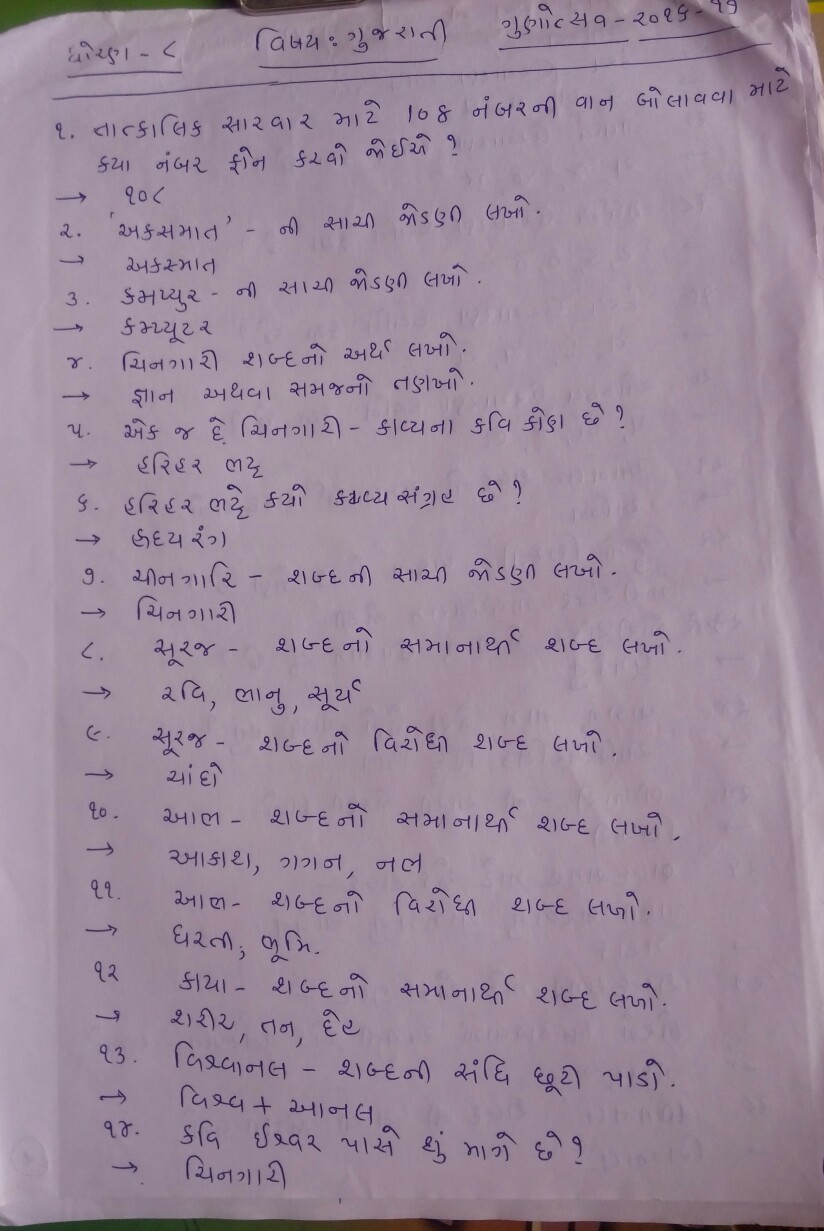 ધોરણ - ૮ વિષય : ગુજરાતી ગુણોત્સવ - ૨૦૧૬ - ૧૭
૧. તાત્કાલિક સારવાર માટે 108 નંબરની વાન બોલાવવા માટે
કયા નંબર ફોન કરવો જોઈએ ?
→ ૧૦૮
૨. 'અકસમાત' - ની સાચી જોડણી લખો.
→ અકસ્માત
૩. કમપ્યુર - ની સાચી જોડણી લખો.
→ કમ્પ્યૂટર
૪. ચિનગારી શબ્દનો અર્થ લખો.
→ જ્ઞાન અથવા સમજનો તણખો.
૫. એક જ દે ચિનગારી - કાવ્યના કવિ કોણ છે ?
→ હરિહર ભટ્ટ
૬. હરિહર ભટ્ટે કયો કાવ્યસંગ્રહ છે ?
→ હૃદયરંગ
૭. ચીનગારિ - શબ્દની સાચી જોડણી લખો.
→ ચિનગારી
૮. સૂરજ - શબ્દનો સમાનાર્થી શબ્દ લખો.
→ રવિ, ભાનુ, સૂર્ય
૯. સૂરજ - શબ્દનો વિરોધી શબ્દ લખો.
→ ચાંદો
૧૦. આભ - શબ્દનો સમાનાર્થી શબ્દ લખો.
→ આકાશ, ગગન, નભ
૧૧. આભ - શબ્દનો વિરોધી શબ્દ લખો.
→ ધરતી, ભૂમિ.
૧૨ કાયા - શબ્દનો સમાનાર્થી શબ્દ લખો.
→ શરીર, તન, દેહ
૧૩. વિશ્વાનલ - શબ્દની સંધિ છૂટી પાડો.
→ વિશ્વ + આનલ
૧૪. કવિ ઈશ્વર પાસે શું માગે છે ?
→ ચિનગારી